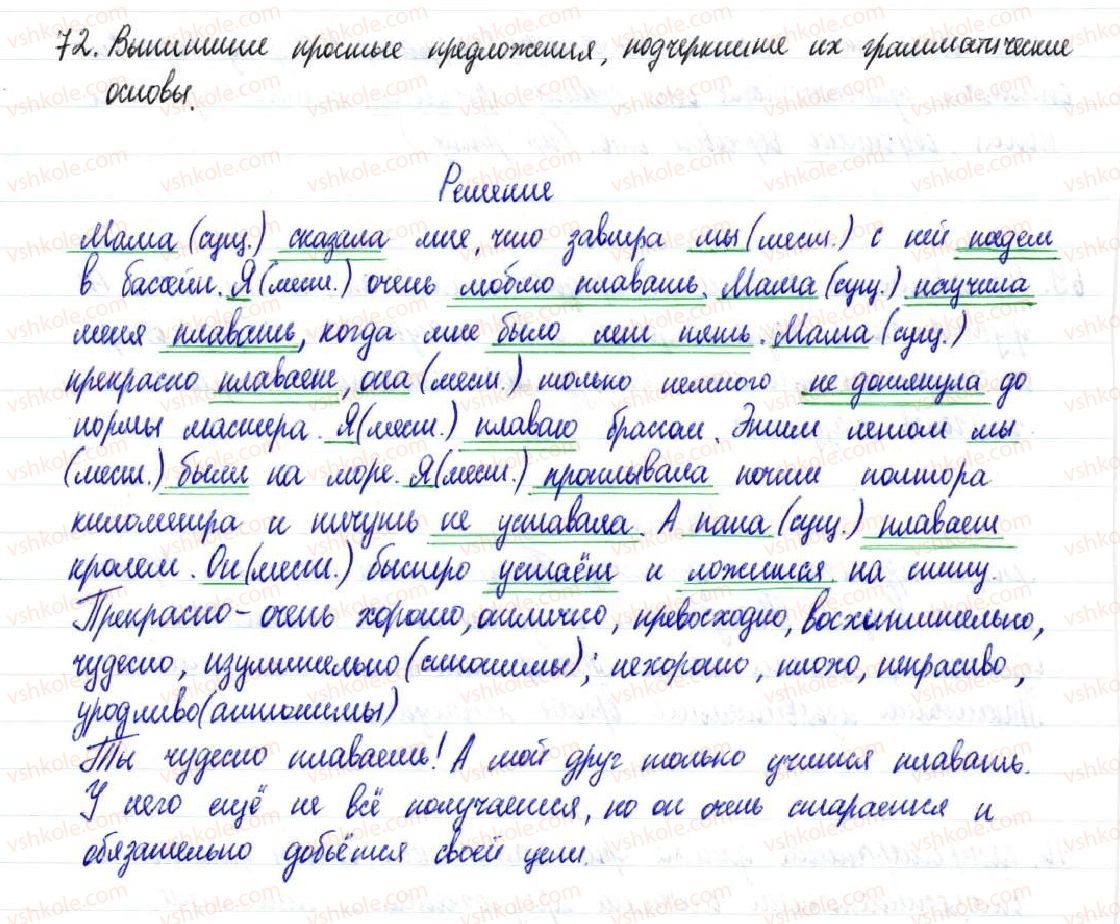 72. Выпишите простые предложения, подчеркните их грамматические
основы.
Решение
Мама (сущ.) сказала мне, что завтра мы (мест.) с ней пойдем
в бассейн. Я (мест.) очень люблю плавать. Мама (сущ.) научила
меня плавать, когда мне было лет пять. Мама (сущ.)
прекрасно плавает, она (мест.) только немного не дотянула до
нормы мастера. Я (мест.) плаваю брассом. Этим летом мы
(мест.) были на море. Я (мест.) проплывала почти полтора
километра и ничуть не уставала. А папа (сущ.) плавает
кролем. Он (мест.) быстро устаёт и ложится на спину.
Прекрасно - очень хорошо, отлично, превосходно, восхитительно,
чудесно, изумительно (синонимы); нехорошо, плохо, некрасиво,
уродливо (антонимы)
Ты чудесно плаваешь! А мой друг только учится плавать.
У него ещё не всё получается, но он очень старается и
обязательно добьётся своей цели.